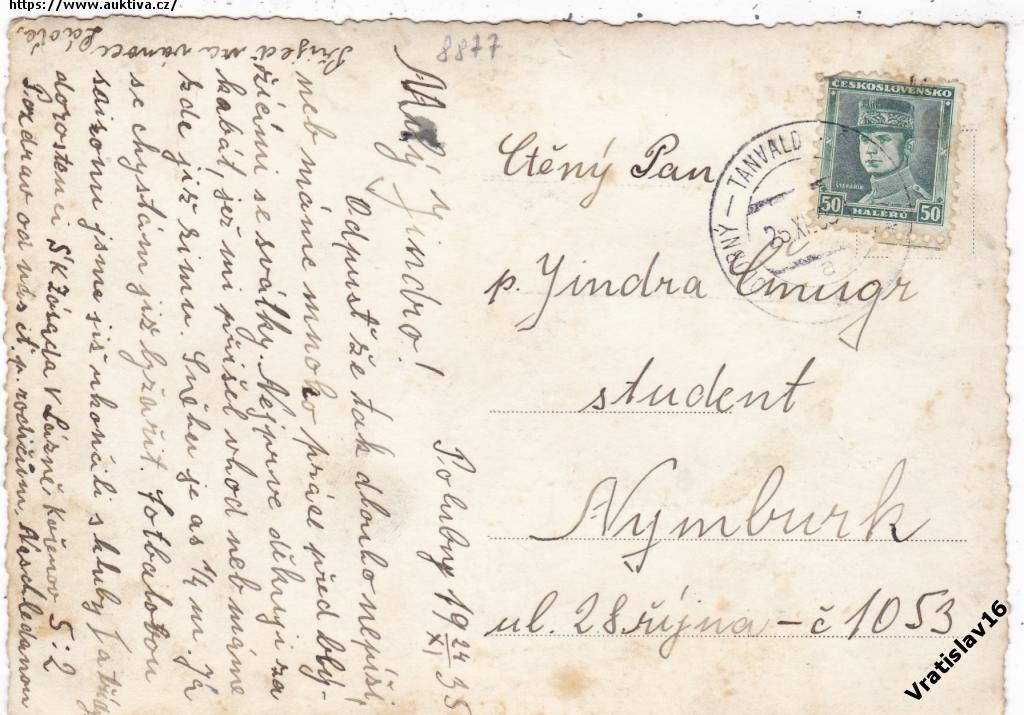 https://www.auktiva.cz/
8877
Polubný 19 24/XI 35
Milý Jindro!
Odpusť že tak dlouho nepíši,
neb máme mnoho práce před blý-
žícími se svátky. Nejprve děkuji za
kabát, jež mi přišel vhod neb máme
zde již zimu. Sněhu je as 1/4 m. Já
se chystám již lyžařit. Fotbalovou
saisonu jsme již ukončili s kluby
dorostenci SK Zásada v Lázně Kořenov 5:2
Pozdrav od nás ct. p. rodičům, Nashledanou
Přijeď na vánoce,
Čtěný Pan
p. Jindra Cmugr
student
Nymburk
ul. 28 října – č 1053
ČESKOSLOVENSKO
ŠTEFÁNIK
50 HALÉŘŮ 50
TANVALD
25 XI
a
Vratislav16